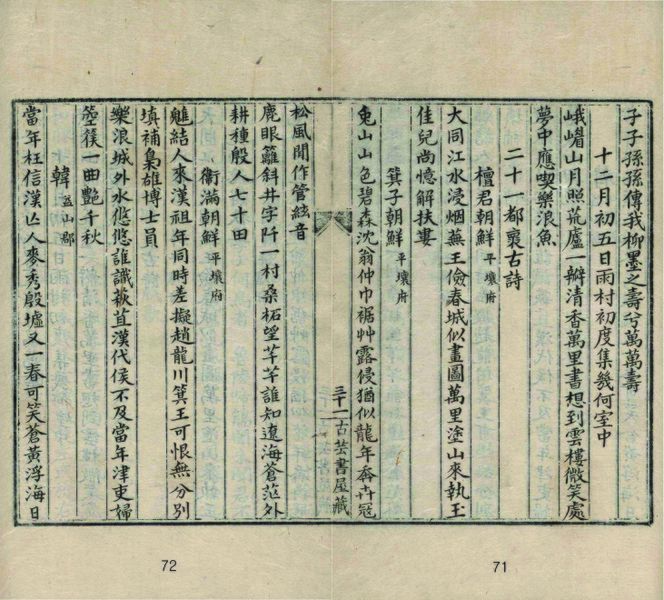 子子孫孫傳我柳墨之壽兮萬萬壽
十二月初五日雨村初度集幾何室中
峨嵋山月照荒廬一瓣清香萬里書想到雲樓微笑處
夢中應喫樂浪魚
二十一都裒古詩
檀君朝鮮平壤府
大同江水浸烟蕪王儉春城似畫圖萬里塗山來執玉
佳兒尚憶解扶婁
箕子朝鮮平壤府
兔山山色碧森沈翁仲巾裾艸露侵猶似龍年奔卉冠
三十一古芸書屋藏
松風閒作管絃音
鹿眼籬斜井字阡一村桑柘望芊芊誰知遼海蒼茫外
耕種殷人七十田
衛滿朝鮮平壤府
魋結人來漢祖年同時差擬趙龍川箕王可恨無分別
填補梟雄博士員
樂浪城外水悠悠誰識萩苴漢代侯不及當年津吏婦
箜篌一曲艷千秋
韓益山郡
當年枉信漢亡人麥秀殷墟又一春可笑蒼黃浮海日
72
71